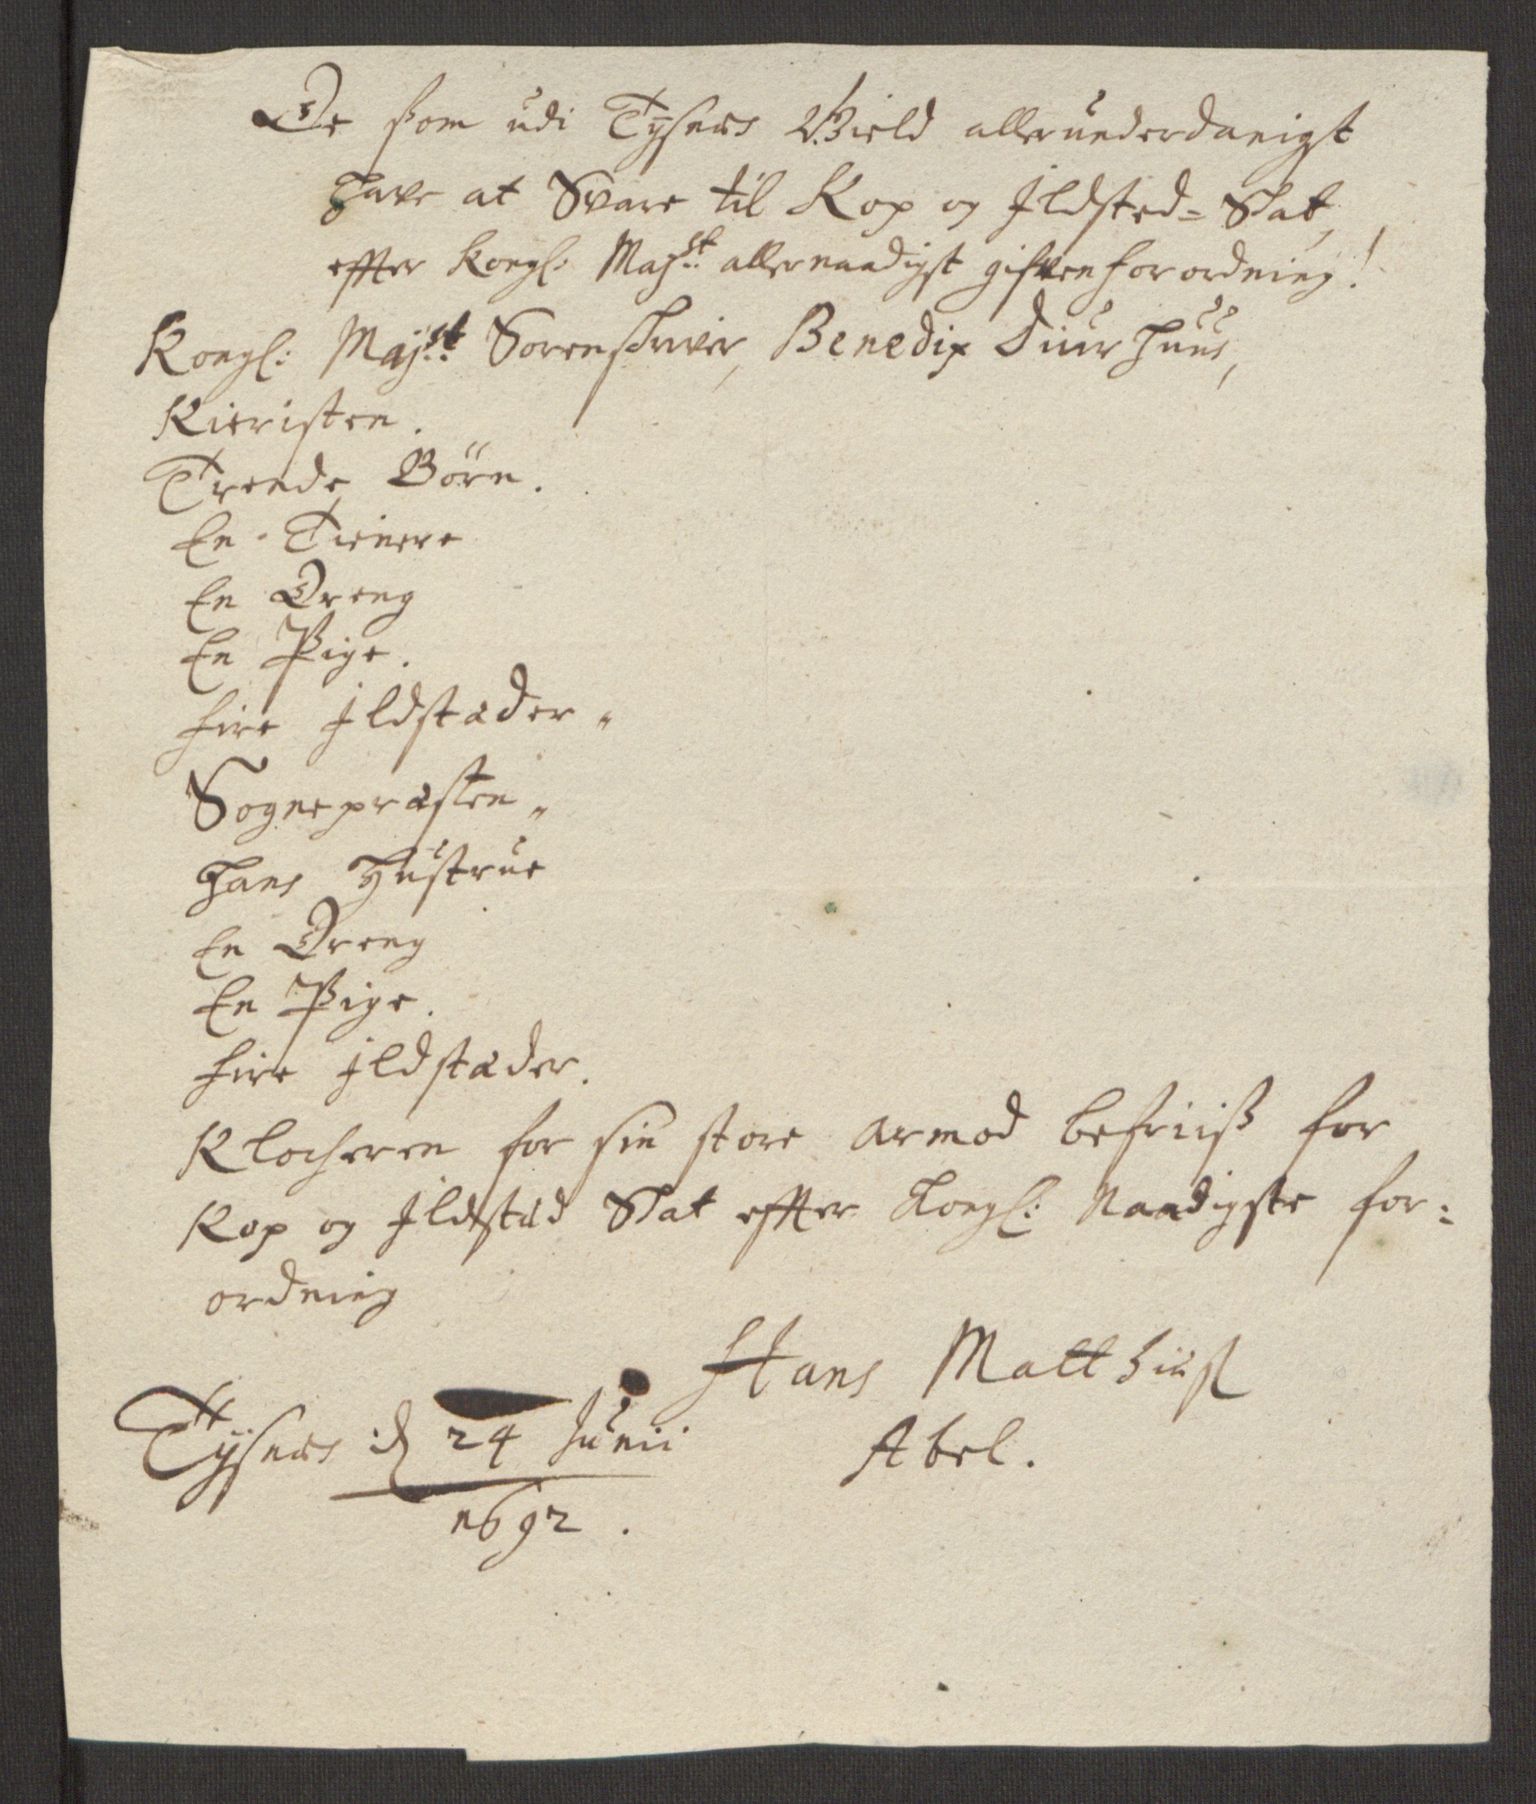 De som udi Tysnæs Gield allerunderdanigst
have at Svare til Kop og Ildsted-Skat,
effter Kongl: Majst: allernaadigst gifven forordning!
Kongl: Majst: Sorenschriver, Benedix Diurhuus,
Kieristen.
Trende Börn.
En Tienere
En Dreng
En Pige.
fire Ildstæder„
Sognepræsten„
hans Hustrue
En Dreng
En Pige.
fire Ildstæder.
Klocheren for sin store armod befriiß for
Kop og Ildstæd Skat effter Kongl: Naadigste for:
ordning
Hans Matthiaß
Abel.
Tysnæs d 24 Junii
1692.